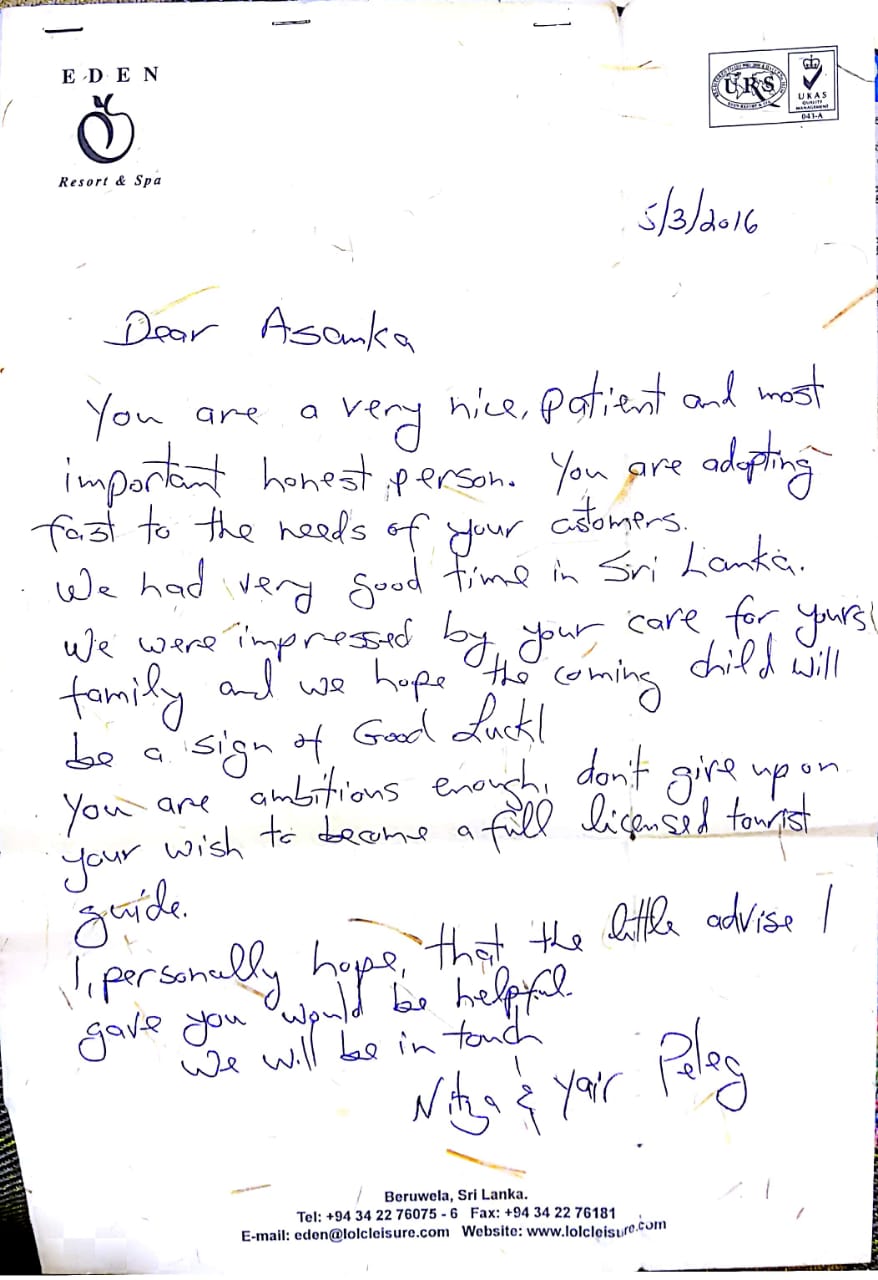 E D E N
Resort & Spa
URS
UKAS
QUALITY
MANAGEMENT
041-A
5/3/2016
Dear Asanka
You are a very nice, patient and most
important honest person. You are adopting
fast to the needs of your castomers.
We had very good time in Sri Lanka.
We were impressed by your care for yours
family and we hope the coming child will
be a sign of Good Luck!
You are ambitious enough, don't give up on
your wish to become a full licensed tourist
guide.
I, personally hope, that the little advise I
gave you would be helpful.
We will be in touch
Nitza & Yair Peleg
Beruwela, Sri Lanka.
Tel: +94 34 22 76075 - 6 Fax: +94 34 22 76181
E-mail: eden@lolcleisure.com Website: www.lolcleisure.com